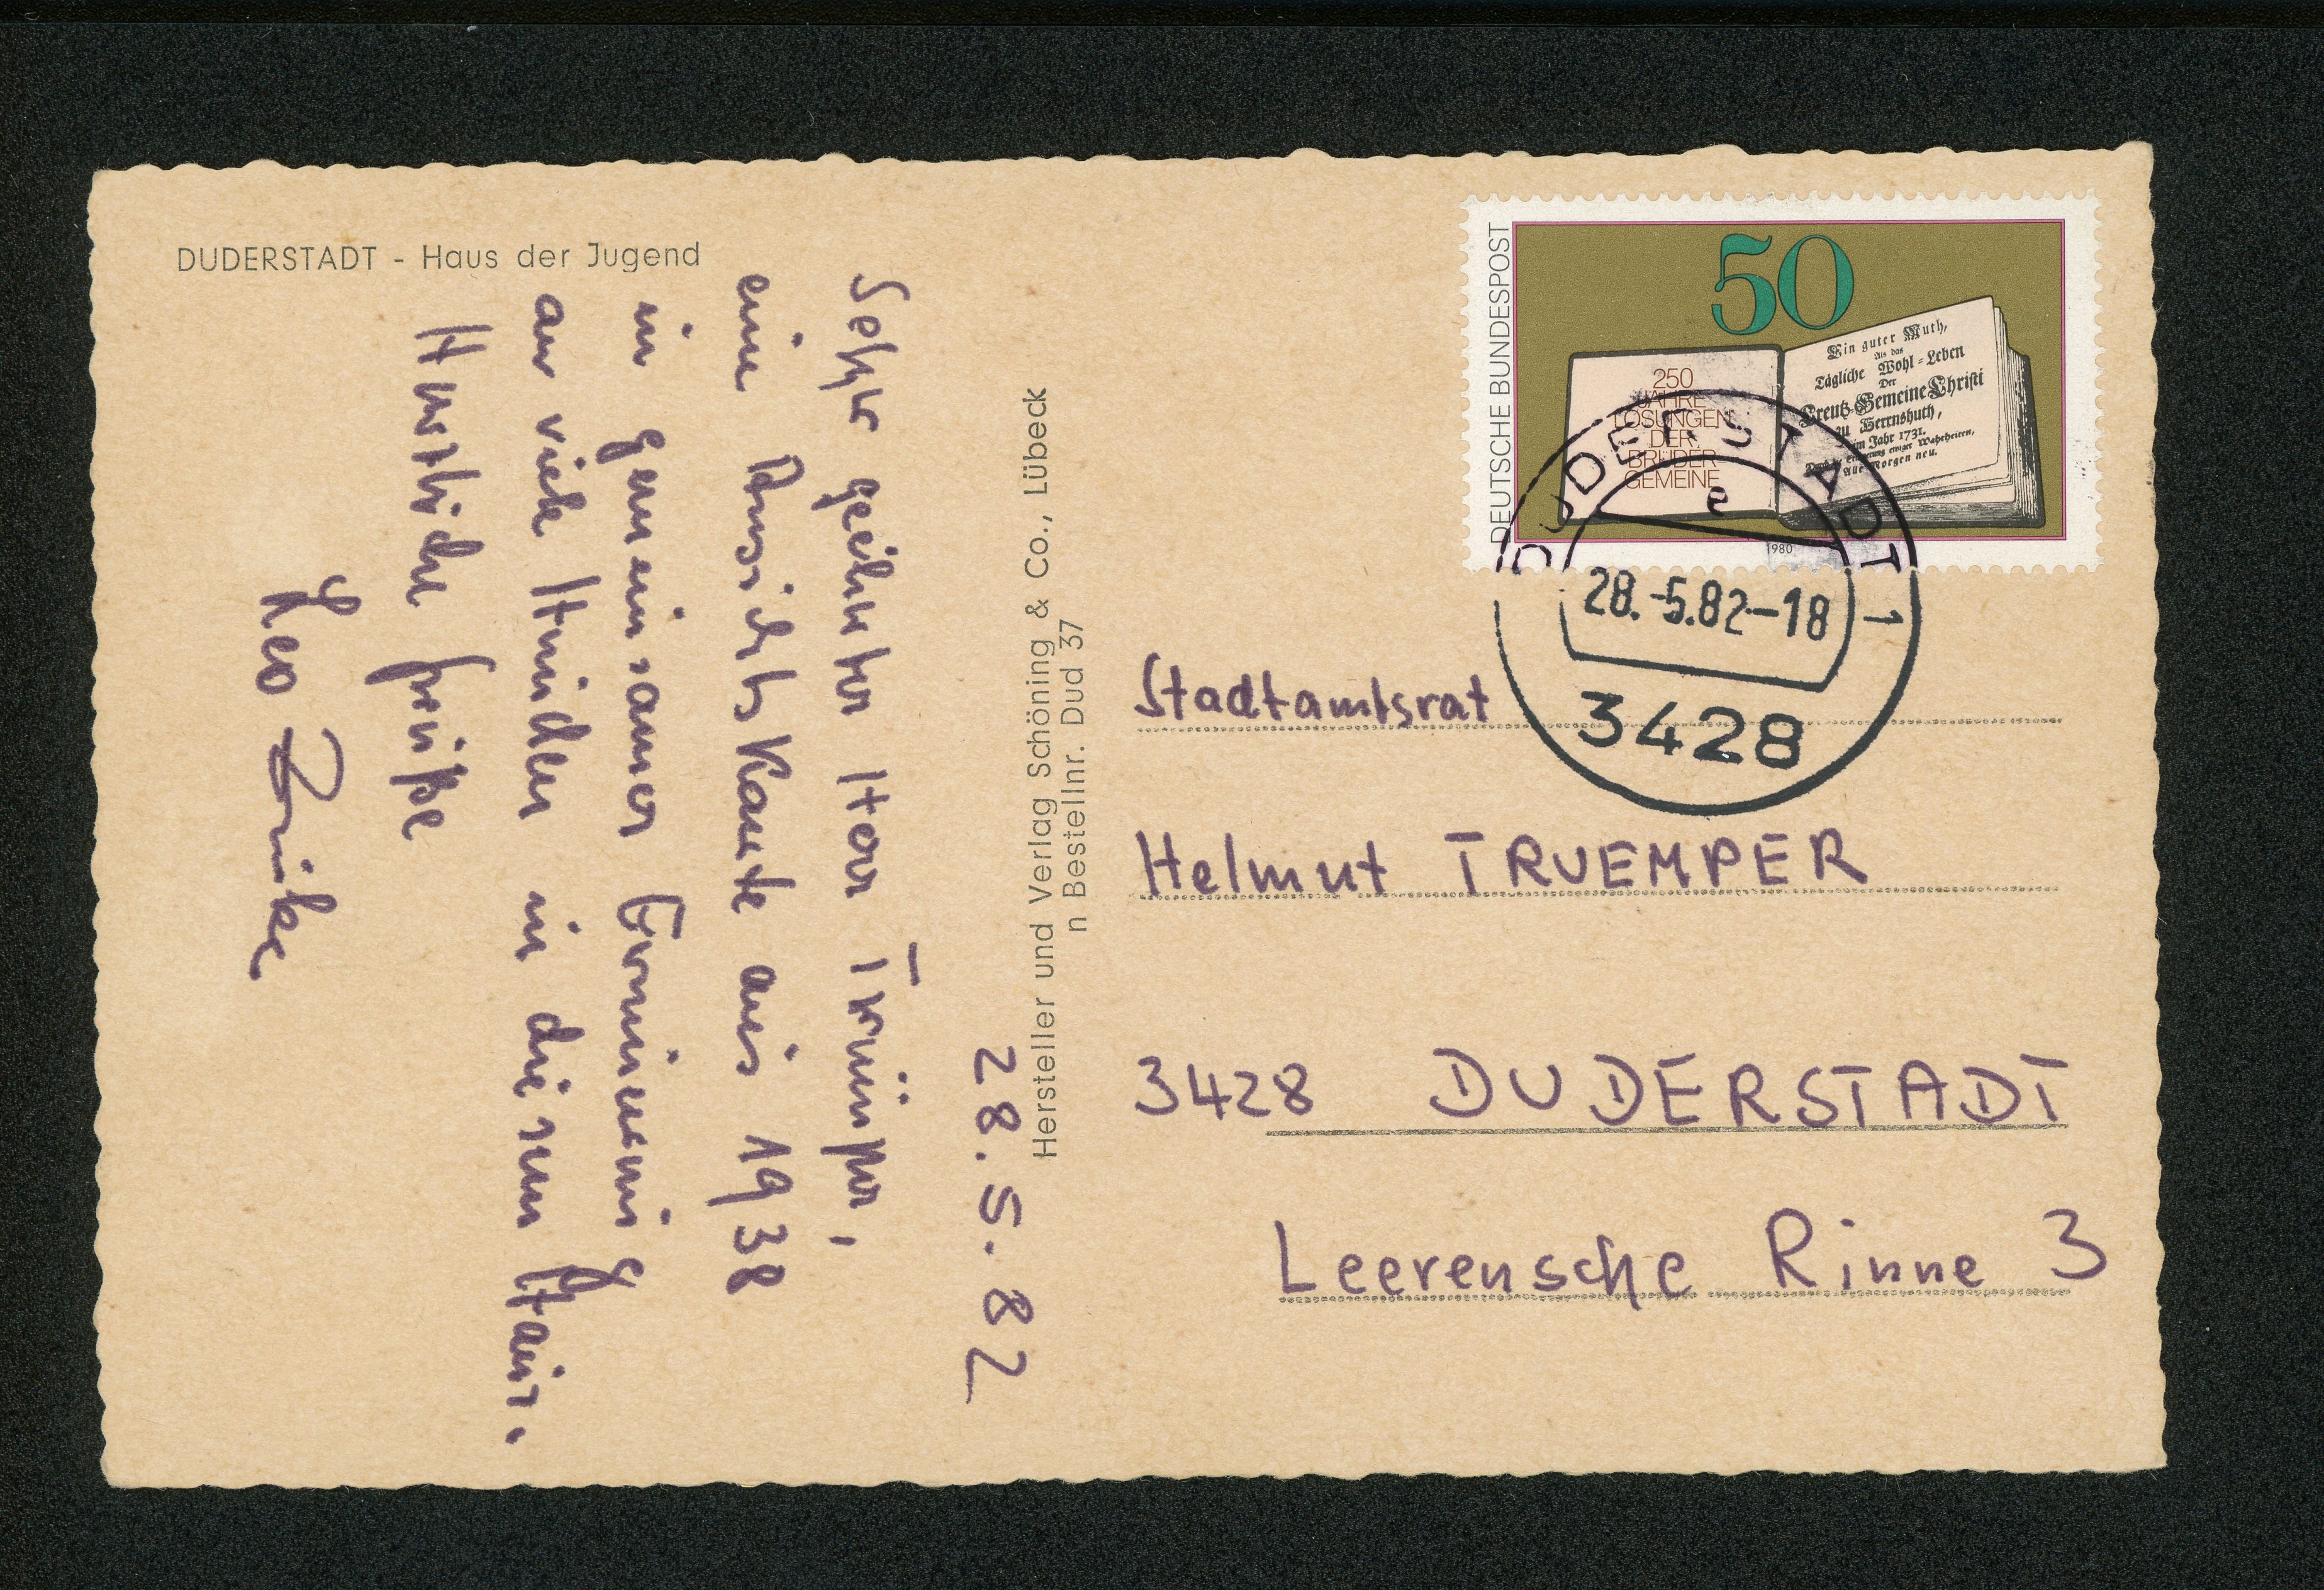 DUDERSTADT - Haus der Jugend
28.5.82
Sehr geehrter Herr Trümper,
eine Ansichtskarte aus 1938
in gemeinsamer Erinnerung
an viele Stunden in diesem Haus.
Herzliche Grüße
Leo
Hersteller und Verlag Schöning & Co., Lübeck
n Bestellnr. Dud 37
DEUTSCHE BUNDESPOST
50
250
JAHRE
LOSUNGEN
DER
BRÜDER
GEMEINE
Ein guter Muth,
Als das
Tägliche Wohl-Leben
Der
Creutz-Gemeine Christi
zu Herrnhuth,
im Jahr 1731.
Alle Morgen neu.
1980
DUDERSTADT 1
e
28.-5.82-18
3428
Stadtamtsrat
Helmut TRUEMPER
3428 DUDERSTADT
Leerensche Rinne 3